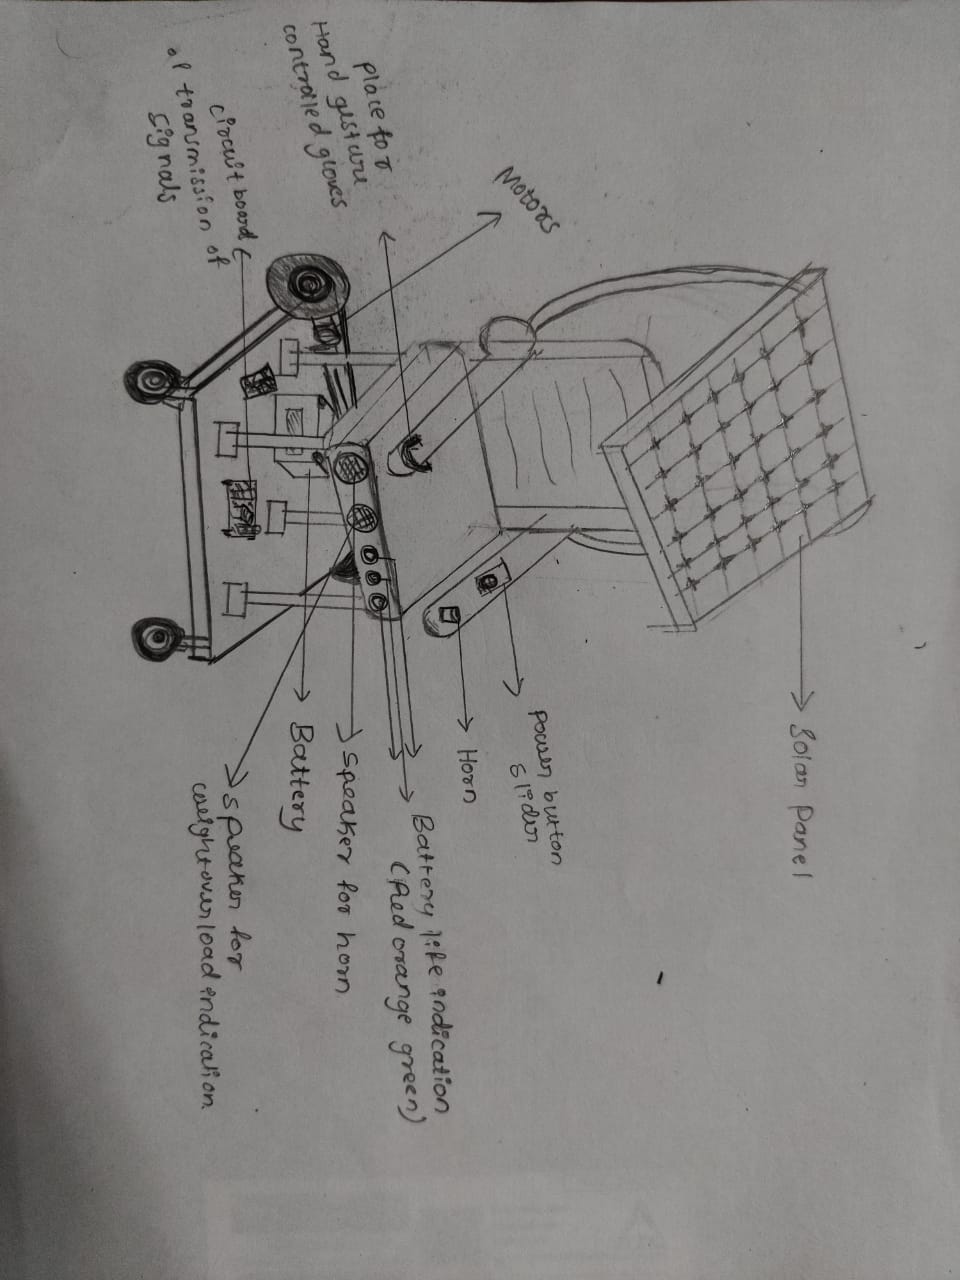 Solar Panel
Motors
Power button
slider
Horn
Battery life indication
(Red orange green)
Place for
Hand gesture
controlled gloves
Speaker for horn
Battery
circuit board
of transmission of
signals
speaker for
weightoverload indication.